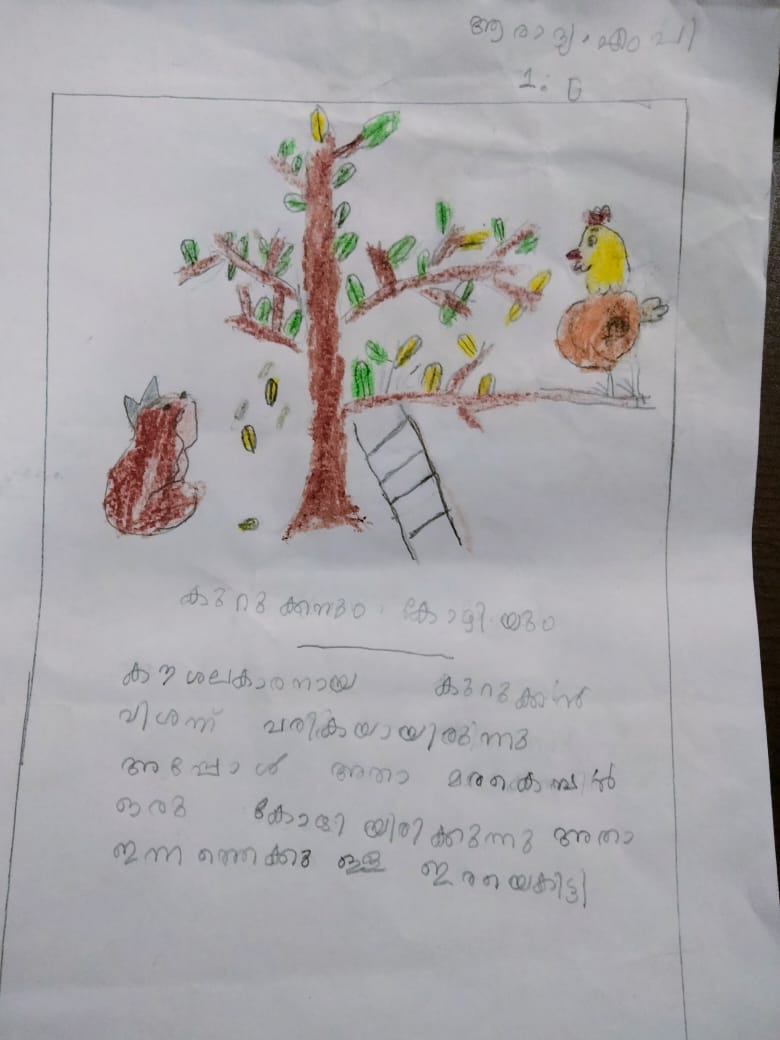 ആരാദ്യ. എം പി
1. G
കുറുക്കനും കോഴിയും
കൗശലകാരനായ കുറുക്കൻ
വിശന്ന് വരികയായിരുന്നു
അപ്പോൾ അതാ മരകൊമ്പിൽ
ഒരു കോഴി യിരിക്കുന്നു അതാ
ഇന്ന ത്തെക്കു ള്ള ഇരയെകിട്ടി